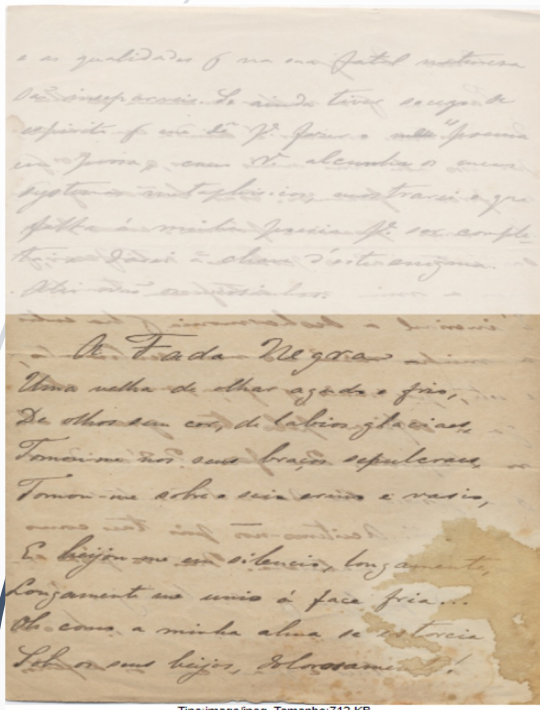 e as qualidades q na sua fatal natureza
são inseparaveis. Se ainda tiver socego de
espirito q me dê pª. fazer o meu "poema
em prosa", como Vª. alcunha os meus
systemas metaphisicos, mostrarei o que
falta á minha poesia pª. ser comple-
ta, e darei a chave d'este enigma.
A Fada Negra
Uma velha de olhar agudo e frio,
De olhos sem cor, de labios glaciaes,
Tomou-me nos seus braços sepulcraes,
Tomou-me sobre o seio ermo e vasio,
E beijou-me em silencio, longamente,
Longamente me unio á face fria...
Oh como a minha alma se estorcia
Sob os seus beijos, dolorosamente!
Tipo:image/jpeg, Tamanho:712 KB